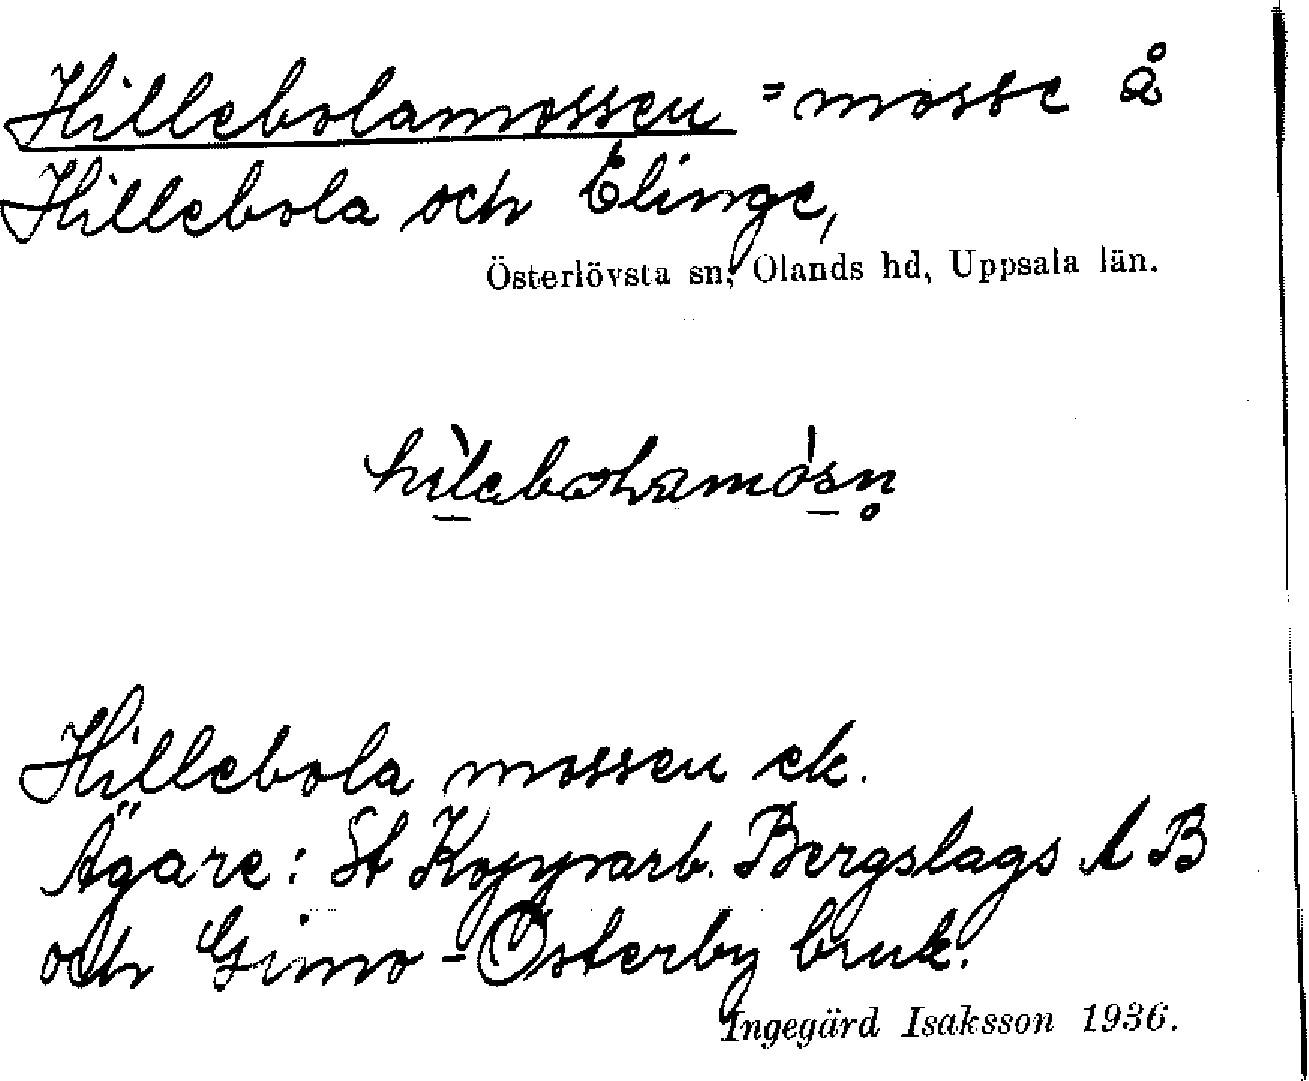 Hillebolamossen = mosse å
Hillebola och Elinge,
Österlövsta sn, Olands hd, Uppsala län.
Hillebola mossen ek.
Ägare: St Kopparb. Bergslags A B
och Gimo-Österby bruk.
Ingegärd Isaksson 1936.